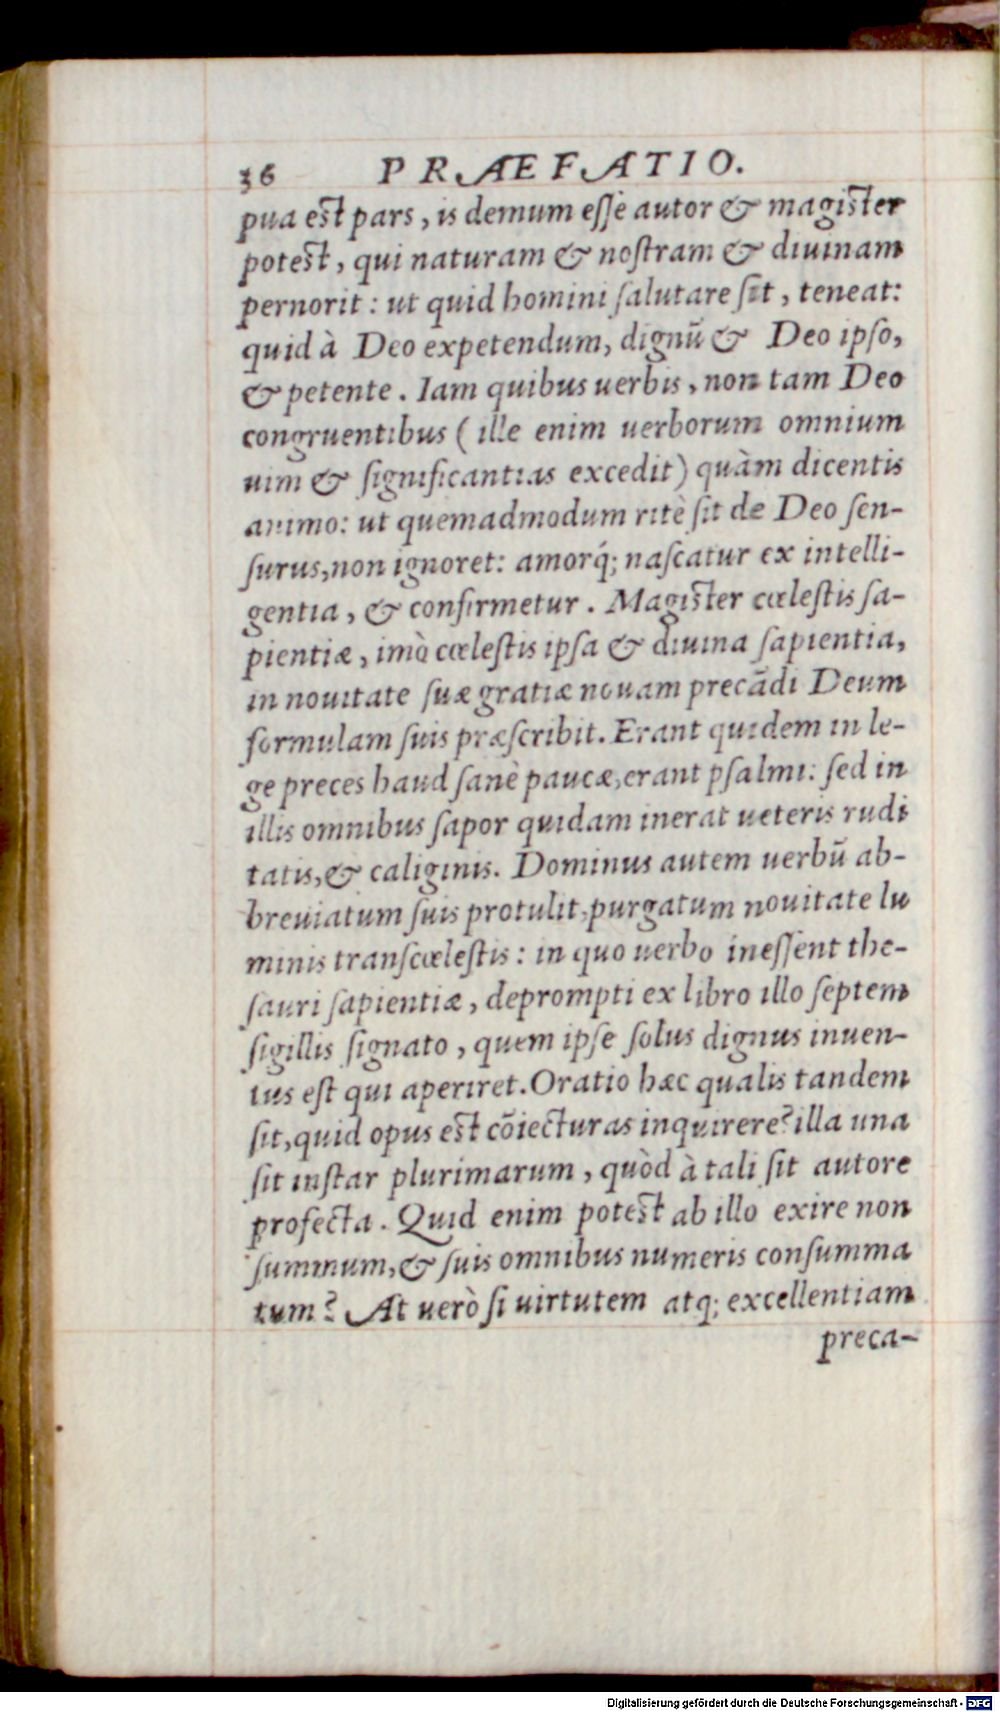 36 PRÆFATIO.
pua est pars, is demum esse autor & magister
potest, qui naturam & nostram & diuinam
pernorit: ut quid homini salutare sit, teneat:
quid à Deo expetendum, dignũ & Deo ipso,
& petente. Iam quibus uerbis, non tam Deo
congruentibus (ille enim uerborum omnium
uim & significantias excedit) quàm dicentis
animo: ut quemadmodum ritè sit de Deo sen-
surus, non ignoret: amorq́; nascatur ex intelli-
gentia, & confirmetur. Magister cœlestis sa-
pientiæ, imò cœlestis ipsa & diuina sapientia,
in nouitate suæ gratiæ nouam precãdi Deum
formulam suis præscribit. Erant quidem in le-
ge preces haud sanè paucæ, erant psalmi: sed in
illis omnibus sapor quidam inerat ueteris rudi
tatis, & caliginis. Dominus autem uerbũ ab-
breuiatum suis protulit, purgatum nouitate lu
minis transcœlestis: in quo uerbo inessent the-
sauri sapientiæ, deprompti ex libro illo septem
sigillis signato, quem ipse solus dignus inuen-
tus est qui aperiret. Oratio hæc qualis tandem
sit, quid opus est cõiecturas inquirere? illa una
sit instar plurimarum, quòd à tali sit autore
profecta. Quid enim potest ab illo exire non
summum, & suis omnibus numeris consumma
tum? At uerò si uirtutem atq; excellentiam
preca-
Digitalisierung gefördert durch die Deutsche Forschungsgemeinschaft - DFG